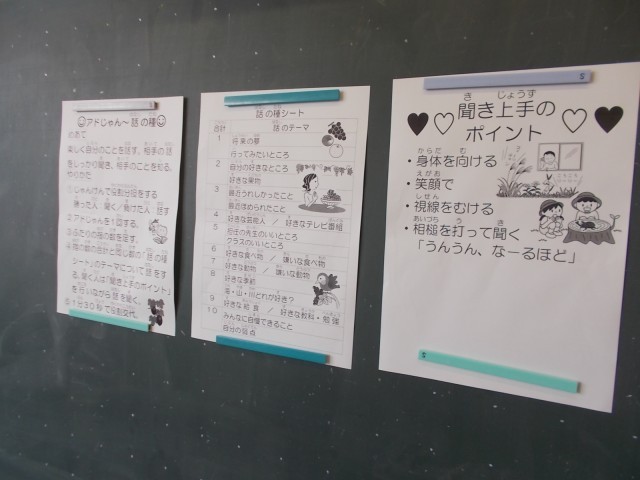 アドじゃん〜話の種
めあて
楽しく自分のことを話す。相手の話
をしっかり聞き、相手のことを知る。
やりかた
①じゃんけんで役割分担をする
勝った人:聞く/負けた人:話す
②アドじゃんを1回する。
③ふたりの指の数を足す。
シート」のテーマについて話をす
る。聞く人は「聞き上手のポイント」
を行いながら話を聞く。
⑤1分30秒で役割交代。
話の種シート
合計 話のテーマ
1 将来の夢
行ってみたいところ
2 自分の好きなところ
好きな果物
3 最近うれしかったこと
最近ほめられたこと
4 好きな芸能人 / 好きなテレビ番組
5 担任の先生のいいところ
6 クラスのいいところ
7 好きな食べ物 / 嫌いな食べ物
好きな動物 / 嫌いな動物
8 好きな季節
9 海・山・川どれが好き?
好きな給食 / 好きな教科・勉強
10 みんなに自慢できること
自分の弱点
き じょうず
聞き上手の
ポイント
からだ む
・身体を向ける
えがお
・笑顔で
しせん
・視線をむける
あいづち う き
・相槌を打って聞く
「うんうん、なーるほど」